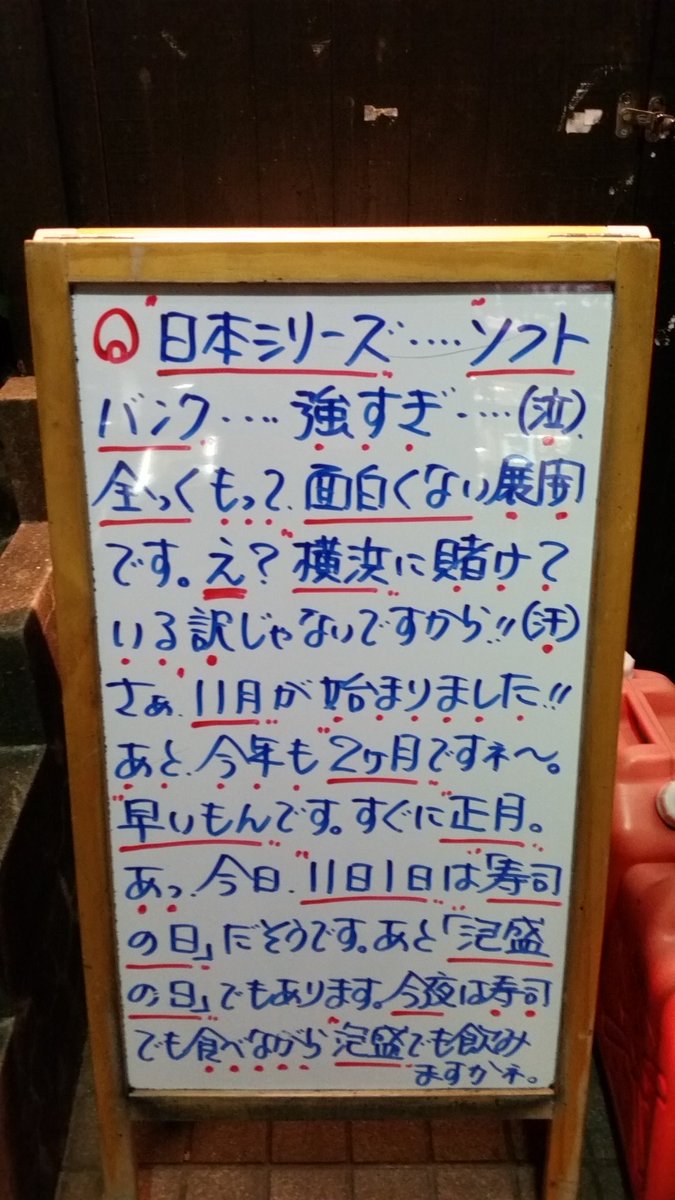 日本シリーズ‥‥ソフト
バンク‥‥強すぎ‥‥(泣)
全っくもって、面白くない展開
です。え?横浜に賭けて
いる訳じゃないですから!!(汗)
さぁ、11月が始まりました!!
あと、今年も2ヶ月ですネ〜。
早いもんです。すぐに正月。
あっ、今日、11日1日は「寿司
の日」だそうです。あと「泡盛
の日」でもあります。今夜は寿司
でも食べながら泡盛でも飲み
ますかネ。